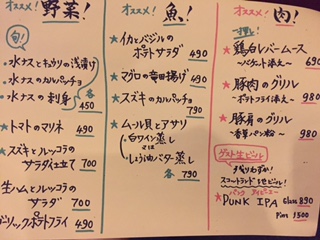 オススメ! 野菜!
旬!
・水ナスとキュウリの浅漬け
・水ナスのカルパッチョ
・水ナスの刺身 各450
★トマトのマリネ 490
★スズキとルッコラの
サラダ仕立て 700
生ハムとルッコラの
サラダ 700
ガーリックポテトフライ 490
オススメ! 魚!
★イカとバジルの
ポテトサラダ 490
★マグロの竜田揚げ 490
★スズキのカルパッチョ
790
★ムール貝とアサリ
・白ワイン蒸し
・しょうゆバター蒸し
各790
オススメ! 肉!
★鶏白レバームース
〜バケット添え〜 690
★豚肉のグリル
〜ポテトフライ添え〜 980
★豚肩のグリル
〜香草パン粉〜 980
ゲスト生ビール!
残りわずか!
スコットランド地ビール!
パンク アイピーエー
★PUNK IPA Glass 890
Pint 1500